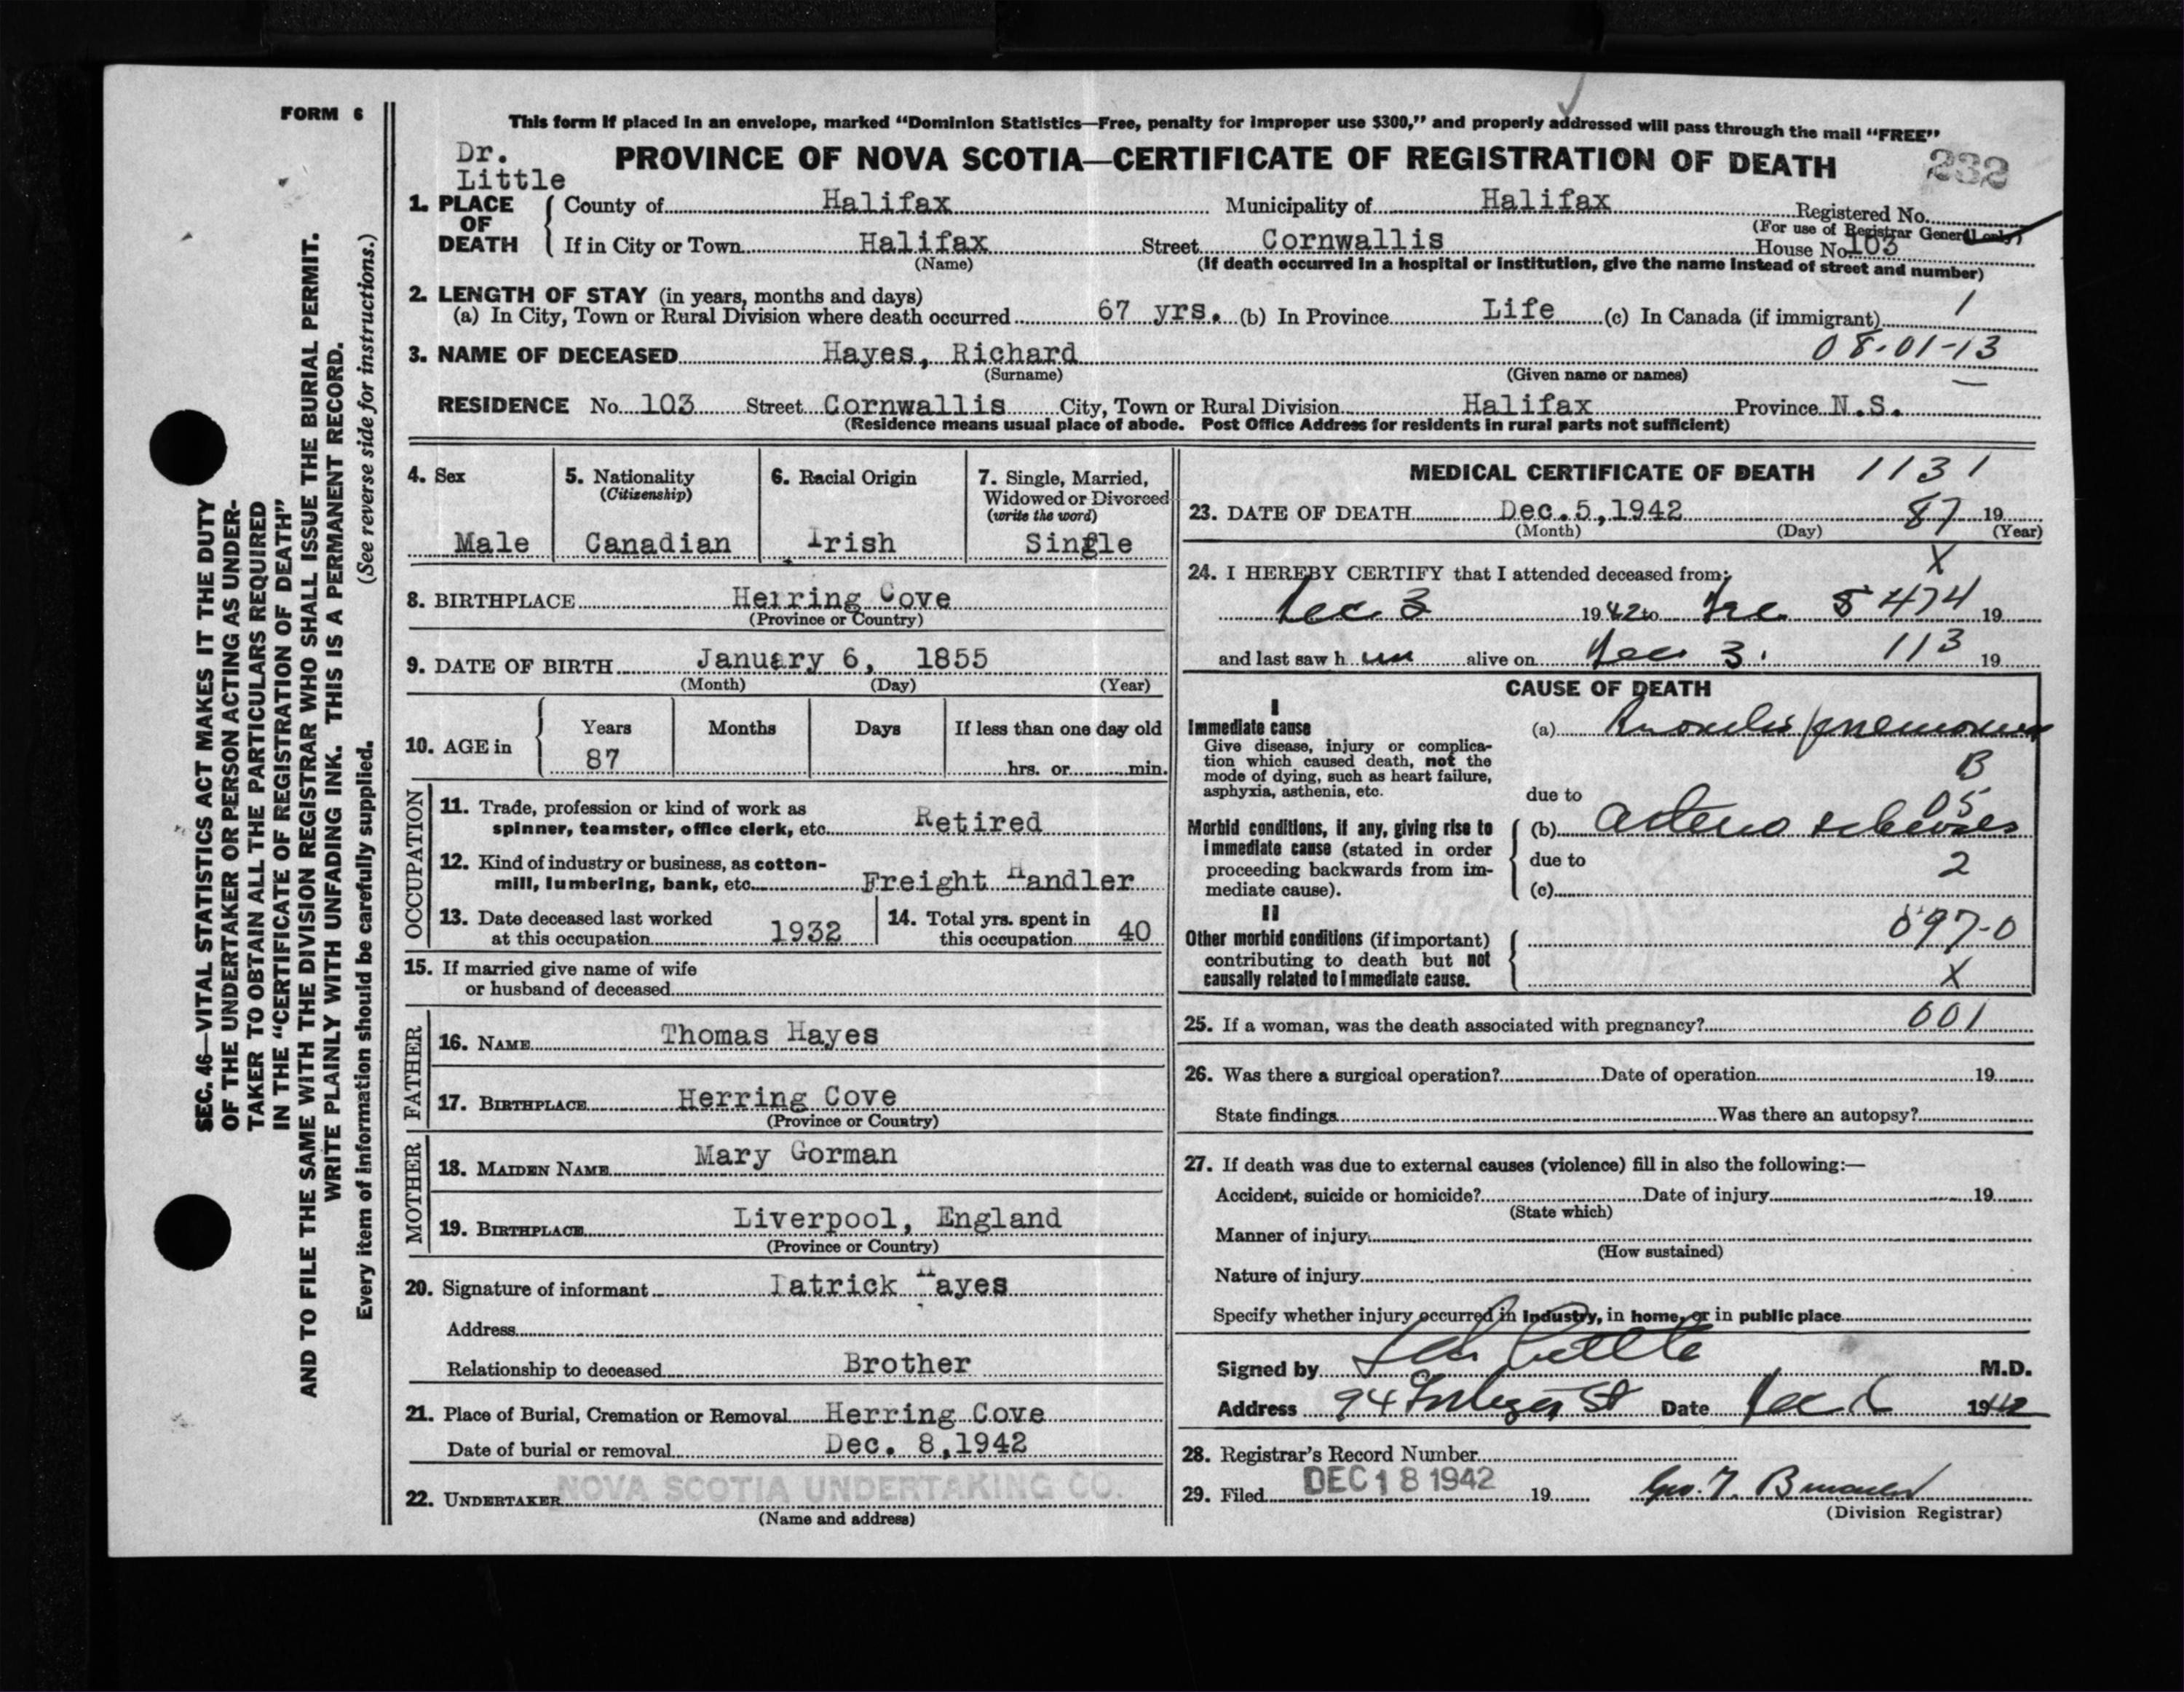 FORM 6
This form if placed in an envelope, marked "Dominion Statistics—Free, penalty for improper use $300," and properly addressed will pass through the mail "FREE"
Dr.
Little
PROVINCE OF NOVA SCOTIA—CERTIFICATE OF REGISTRATION OF DEATH
232
1. PLACE OF DEATH
County of Halifax Municipality of Halifax Registered No.
(For use of Registrar General only)
If in City or Town Halifax Street Cornwallis House No. 103
(Name) (If death occurred in a hospital or institution, give the name instead of street and number)
2. LENGTH OF STAY (in years, months and days)
(a) In City, Town or Rural Division where death occurred 67 yrs. (b) In Province Life (c) In Canada (if immigrant) 1
3. NAME OF DECEASED Hayes, Richard 08-01-13
(Surname) (Given name or names)
RESIDENCE No. 103 Street Cornwallis City, Town or Rural Division Halifax Province N.S.
(Residence means usual place of abode. Post Office Address for residents in rural parts not sufficient)
4. Sex
Male
5. Nationality
(Citizenship)
Canadian
6. Racial Origin
Irish
7. Single, Married,
Widowed or Divorced
(write the word)
Single
8. BIRTHPLACE Herring Cove
(Province or Country)
9. DATE OF BIRTH January 6, 1855
(Month) (Day) (Year)
10. AGE in
Years Months Days If less than one day old
87 hrs. or min.
OCCUPATION
11. Trade, profession or kind of work as
spinner, teamster, office clerk, etc. Retired
12. Kind of industry or business, as cotton-
mill, lumbering, bank, etc. Freight Handler
13. Date deceased last worked
at this occupation 1932
14. Total yrs. spent in
this occupation 40
15. If married give name of wife
or husband of deceased
FATHER
16. NAME Thomas Hayes
17. BIRTHPLACE Herring Cove
(Province or Country)
MOTHER
18. MAIDEN NAME Mary Gorman
19. BIRTHPLACE Liverpool, England
(Province or Country)
20. Signature of informant Patrick Hayes
Address
Relationship to deceased Brother
21. Place of Burial, Cremation or Removal Herring Cove
Date of burial or removal Dec. 8, 1942
22. UNDERTAKER NOVA SCOTIA UNDERTAKING CO.
(Name and address)
MEDICAL CERTIFICATE OF DEATH 1131
23. DATE OF DEATH Dec. 5, 1942 87 19
(Month) (Day) (Year)
X
24. I HEREBY CERTIFY that I attended deceased from:
Dec 3 1942 to Dec 5 474 19
and last saw h im alive on Dec 3. 113 19
CAUSE OF DEATH
I
Immediate cause
Give disease, injury or complica-
tion which caused death, not the
mode of dying, such as heart failure,
asphyxia, asthenia, etc.
(a) Broncho pneumonia
B
due to
05
Morbid conditions, if any, giving rise to
immediate cause (stated in order
proceeding backwards from im-
mediate cause).
(b) Arterio sclerosis
due to
2
(c)
II
Other morbid conditions (if important)
contributing to death but not
causally related to immediate cause.
097-0
X
25. If a woman, was the death associated with pregnancy? 001
26. Was there a surgical operation? Date of operation 19
State findings Was there an autopsy?
27. If death was due to external causes (violence) fill in also the following:—
Accident, suicide or homicide? Date of injury 19
(State which)
Manner of injury
(How sustained)
Nature of injury
Specify whether injury occurred in industry, in home, or in public place
Signed by Little M.D.
Address 94 St Date Dec 1942
28. Registrar's Record Number
29. Filed DEC 18 1942 19 Geo.
(Division Registrar)
SEC. 46—VITAL STATISTICS ACT MAKES IT THE DUTY
OF THE UNDERTAKER OR PERSON ACTING AS UNDER-
TAKER TO OBTAIN ALL THE PARTICULARS REQUIRED
IN THE "CERTIFICATE OF REGISTRATION OF DEATH"
AND TO FILE THE SAME WITH THE DIVISION REGISTRAR WHO SHALL ISSUE THE BURIAL PERMIT.
WRITE PLAINLY WITH UNFADING INK. THIS IS A PERMANENT RECORD.
Every item of information should be carefully supplied. (See reverse side for instructions.)